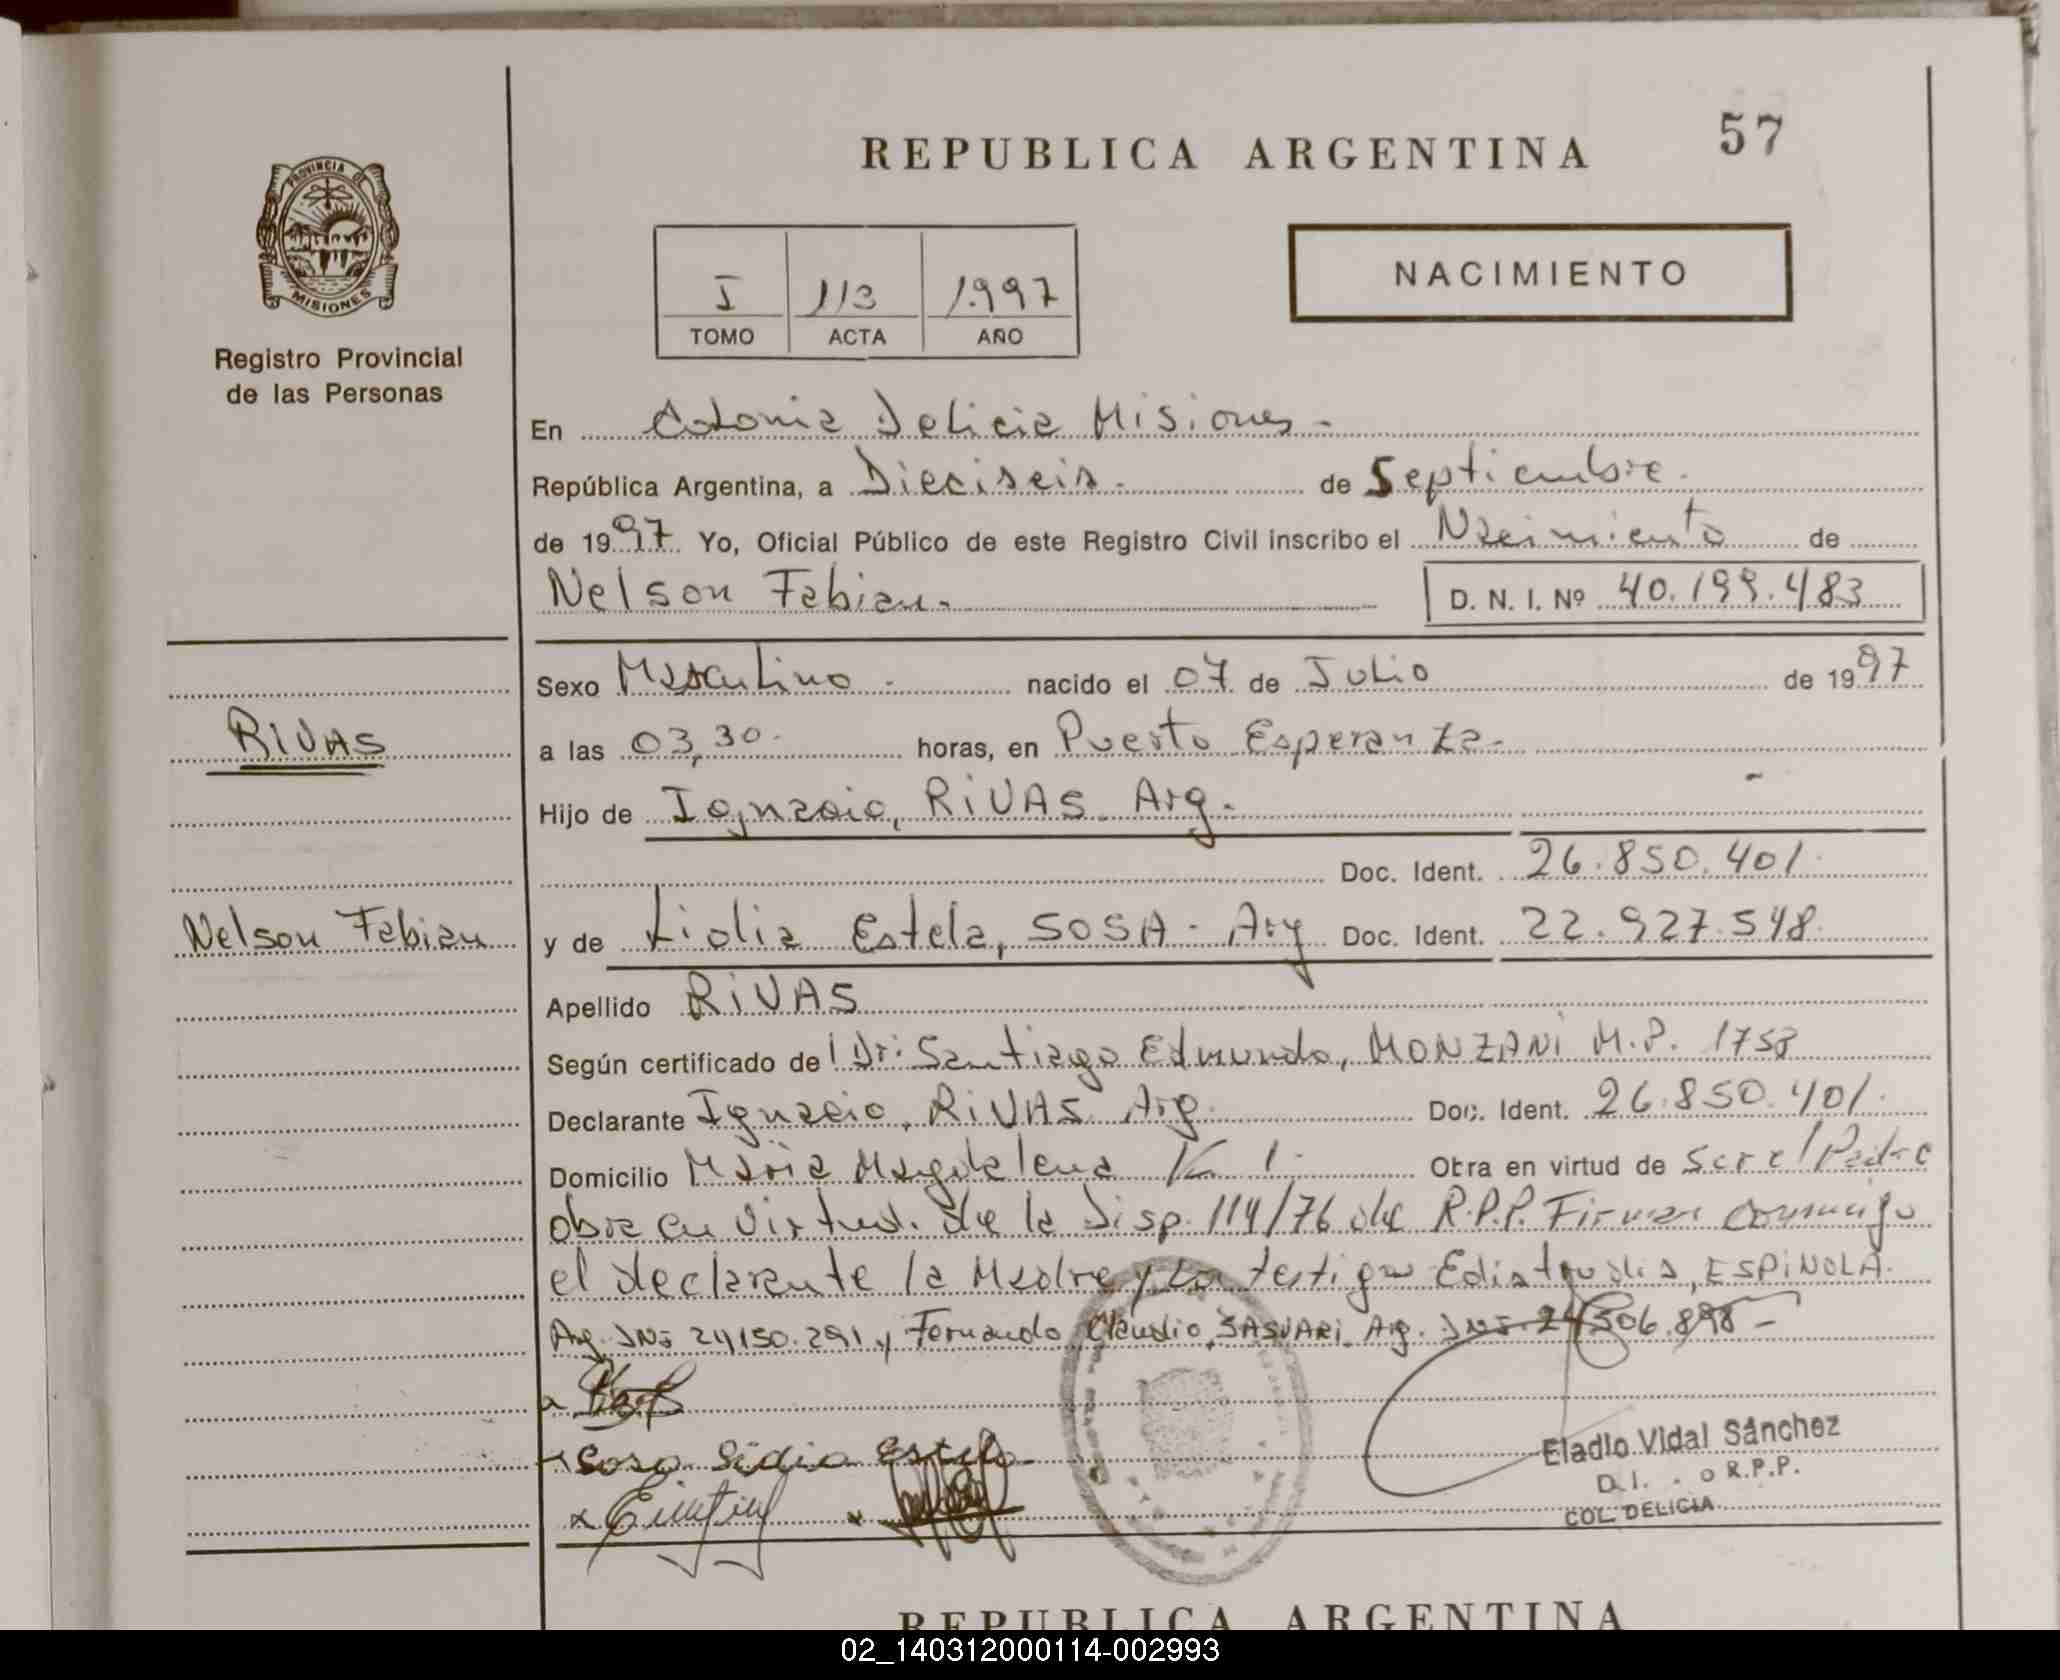 REPUBLICA ARGENTINA
57
PROVINCIA DE
MISIONES
Registro Provincial
de las Personas
I 113 1.997
TOMO ACTA AÑO
NACIMIENTO
En Colonia Delicia Misiones.
República Argentina, a Dieciseis. de Septiembre.
de 1997. Yo, Oficial Público de este Registro Civil inscribo el Nacimiento de
Nelson Fabian. D. N. I. Nº 40.199.483
Sexo Masculino. nacido el 07 de Julio de 1997
RIVAS
a las 03,30. horas, en Puerto Esperanza.
Hijo de Ignacio, RIVAS Arg.
Doc. Ident. 26.850.401.
Nelson Fabian
y de Lidia Estela, SOSA - Arg Doc. Ident. 22.927.548.
Apellido RIVAS
Según certificado de Dr: Santiago Edmundo, MONZANI M.P. 1758
Declarante Ignacio, RIVAS Arg. Doc. Ident. 26.850.401.
Domicilio Maria Magdalena Km 1. Obra en virtud de ser el Padre
obra en virtud. de la Disp. 114/76 del R.P.P. Firman conmigo
el declarante la Madre y los testigos ESPINOLA.
Arg. DNI 24150.291 y Fernando Claudio, Arg. DNI. 24506.898-
Sosa Lidia Estela
Eladio Vidal Sánchez
R.P.P.
COL. DELICIA
REPUBLICA ARGENTINA
02_140312000114-002993